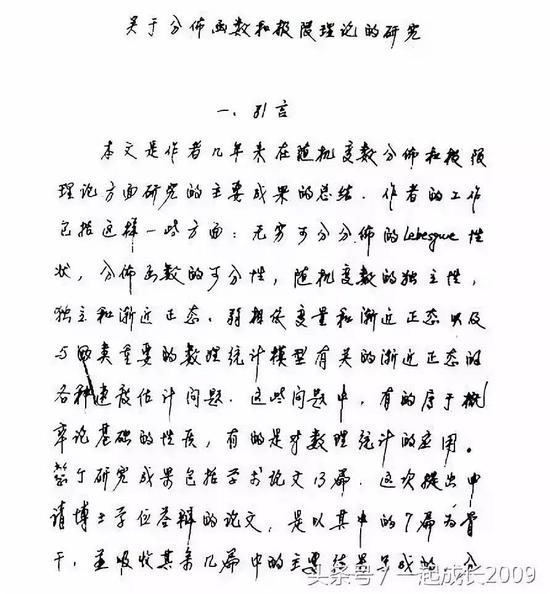 关于分佈函数和极限理论的研究
一、引言
本文是作者几年来在随机变数分佈和极限
理论方面研究的主要成果的总结．作者的工作
包括这样一些方面：无穷可分分佈的Lebesgue性
状，分佈函数的可分性，随机变数的独立性，
独立和渐近正态、弱相依变量和渐近正态以及
与 类重要的数理统计模型有关的渐近正态的
各种速度估计问题．这些问题中，有的属于概
率论基础的性质，有的是对数理统计的应用。
整个研究成果包括学术论文13篇．这次提出申
请博士学位答辩的论文，是以其中的7篇为骨
干，并吸收其余几篇中的主要结果写成的．分
头条号/一起成长2009